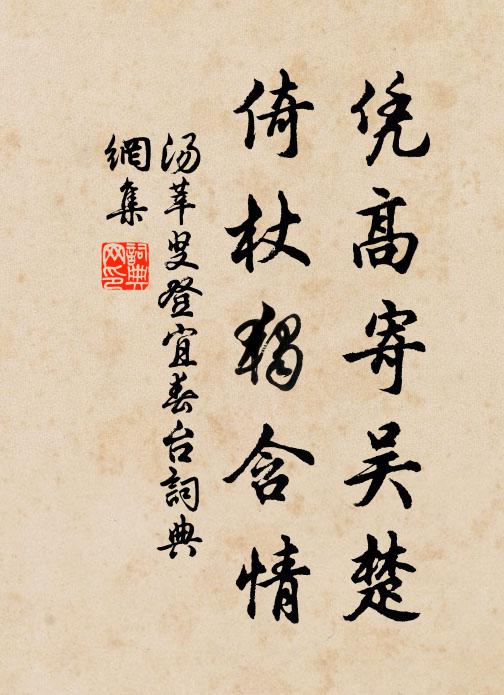 凭高寄吴楚
倚杖獨含情
汤莘叟登宜春台詞典
網集
詞典
网印